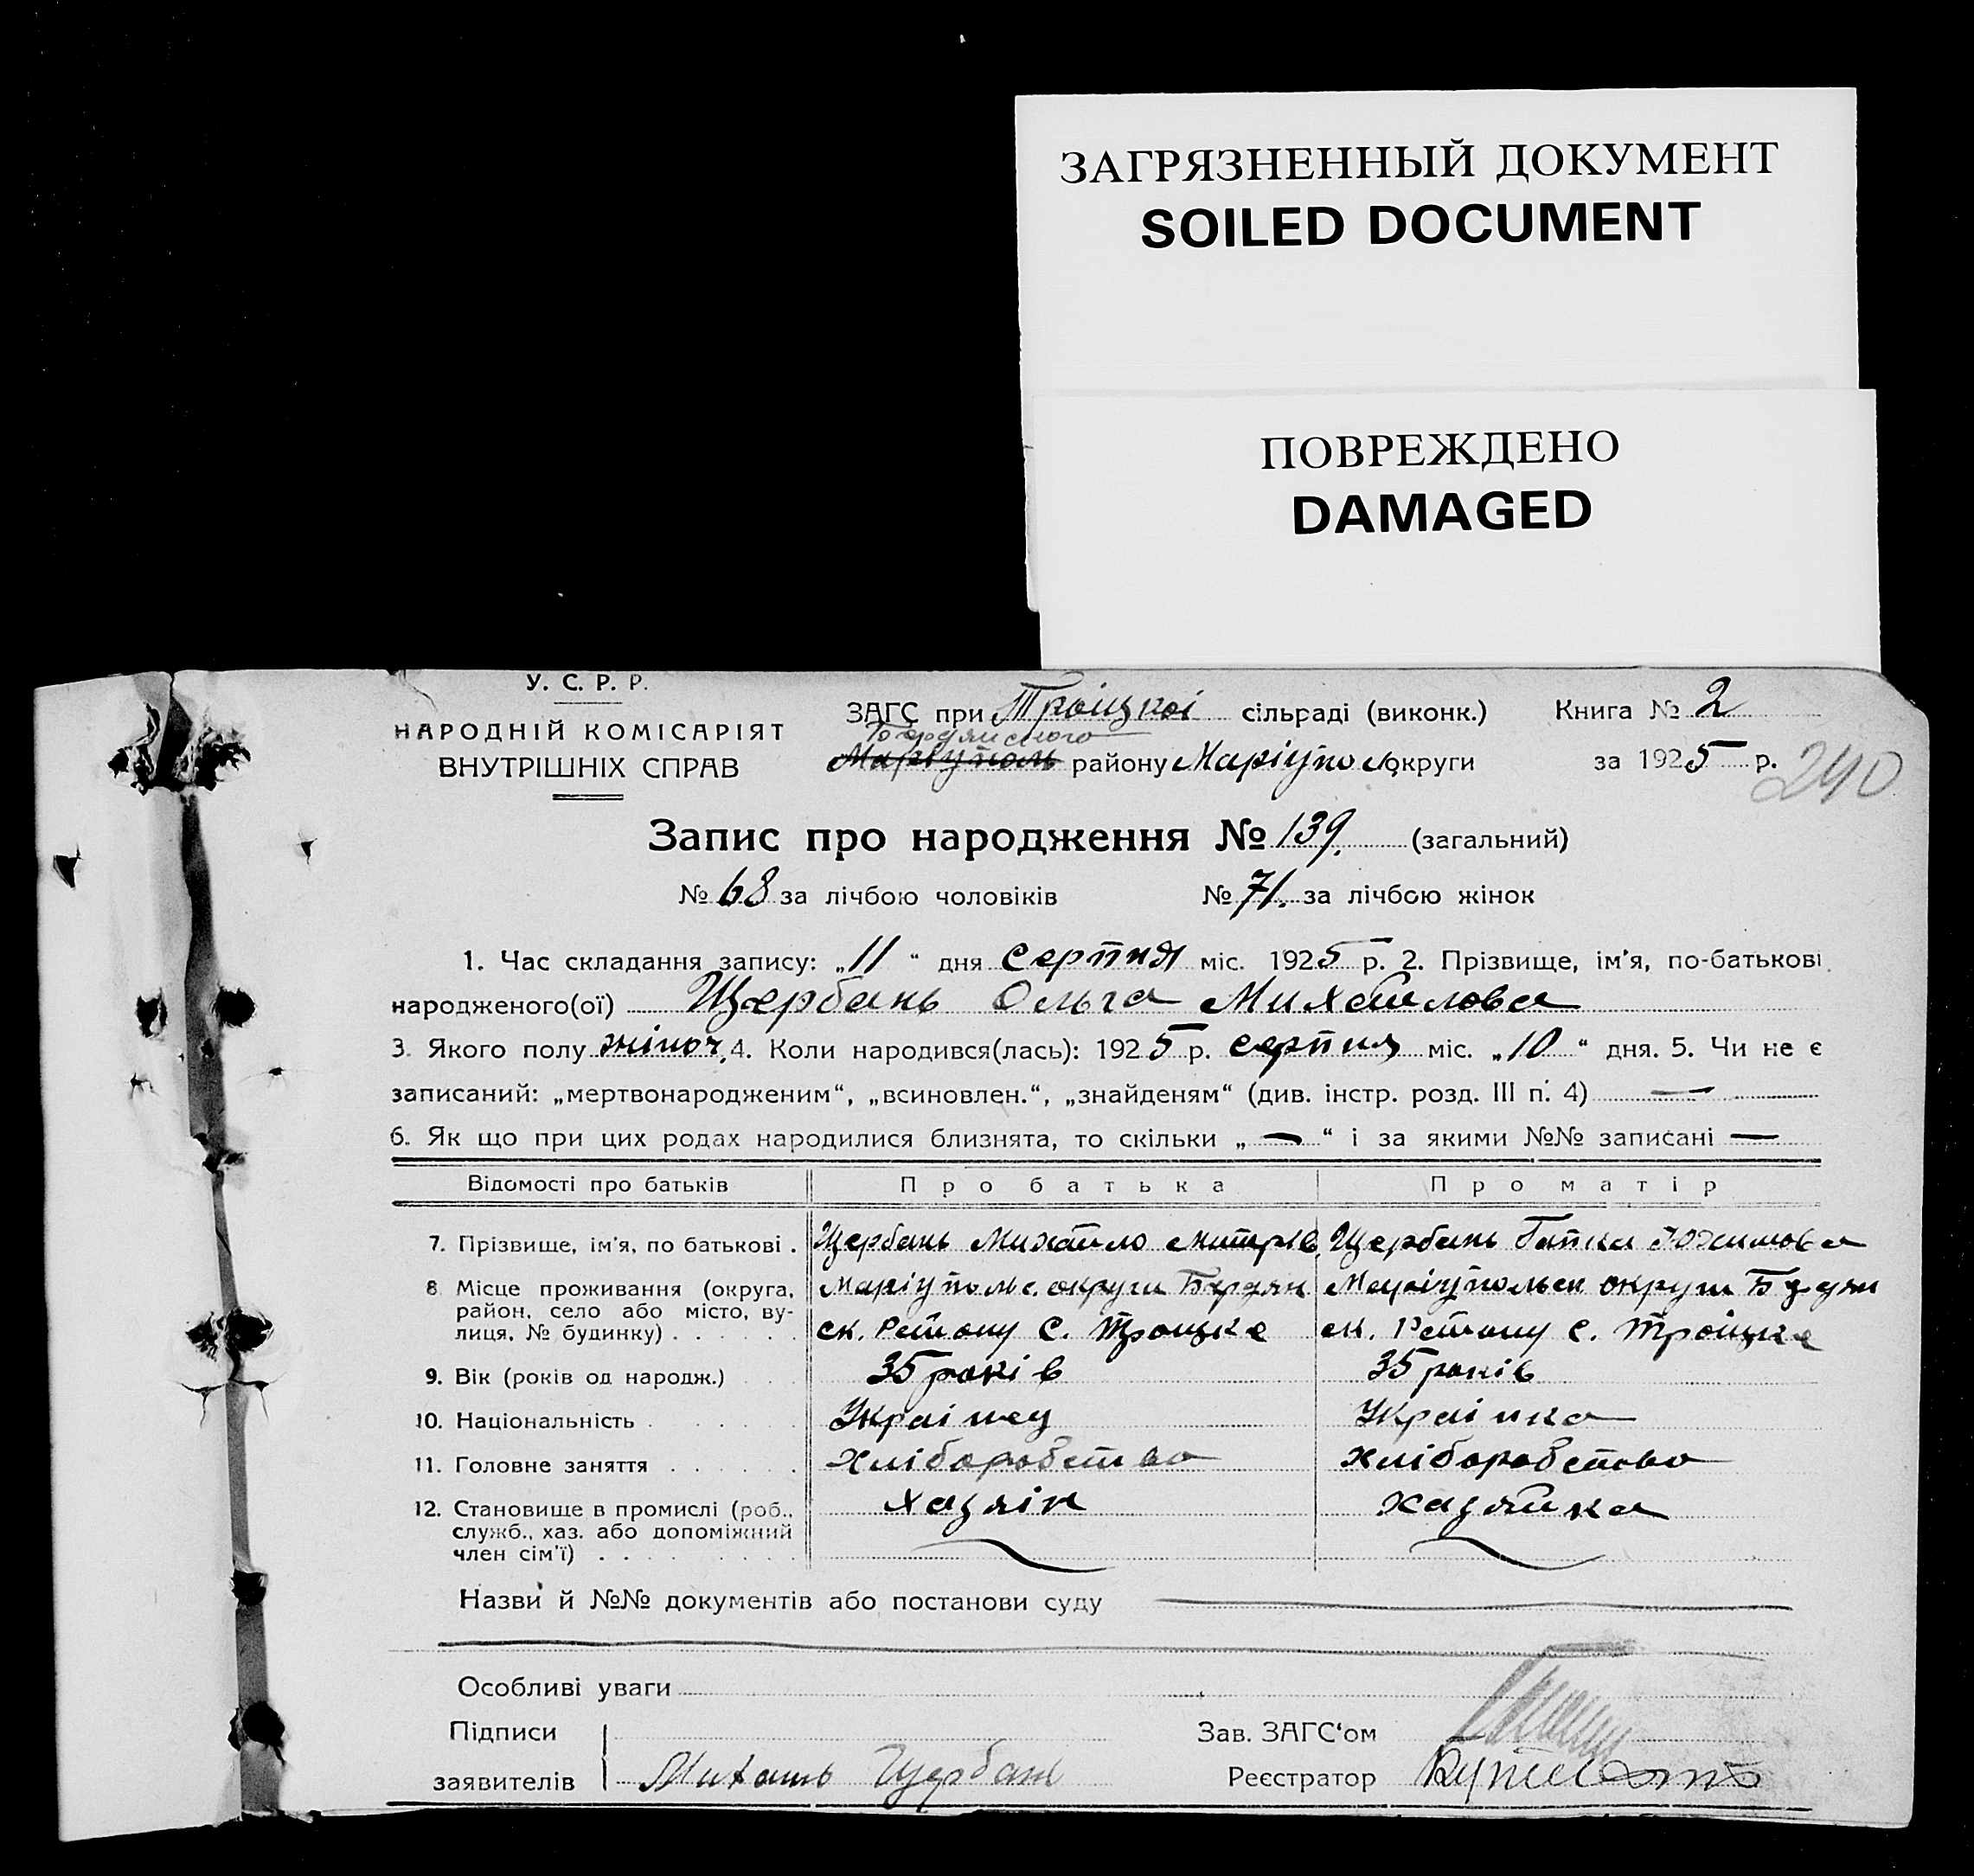 ЗАГРЯЗНЕННЫЙ ДОКУМЕНТ
SOILED DOCUMENT
ПОВРЕЖДЕНО
DAMAGED
У. С. Р. Р.
НАРОДНІЙ КОМІСАРІЯТ
ВНУТРІШНІХ СПРАВ
ЗАГС при Троіцкоі сільраді (виконк.)
Маріуполь району Маріупол округи
Книга № 2
за 1925 р.
240
Запис про народження № 139. (загальний)
№ 68 за лічбою чоловіків № 71. за лічбою жінок
1. Час складання запису: „11“ дня серпня міс. 1925 р. 2. Прізвище, ім'я, по-батькові
народженого(ої) Щербань Ольга Михайлова
3. Якого полу жіноч. 4. Коли народився(лась): 1925 р. серпня міс. „10“ дня. 5. Чи не є
записаний: „мертвонародженим“, „всиновлен.“, „знайденям“ (див. інстр. розд. III п. 4) —
6. Як що при цих родах народилися близнята, то скільки „—“ і за якими №№ записані —
Відомості про батьків Про батька Про матір
7. Прізвище, ім'я, по батькові . Щербань Михайло Щербань Гапка
8. Місце проживання (округа, Маріупольс. округи Бердян Маріупольск округи
район, село або місто, ву-
лиця, № будинку) . . . . . . ск. Району С. Троицке ск. Району С. Троіцке
9. Вік (років од народж.) . . . 35 років 35 років
10. Національність . . . . Украінец Украінка
11. Головне заняття . . . . . . хліборобство хліборобство
12. Становище в промислі (роб., хазяін хазяйка
служб., хаз. або допоміжний
член сім'ї) . . . . . . . . .
Назви й №№ документів або постанови суду
Особливі уваги
Підписи
заявителів Щербань
Зав. ЗАГС'ом
Реєстратор